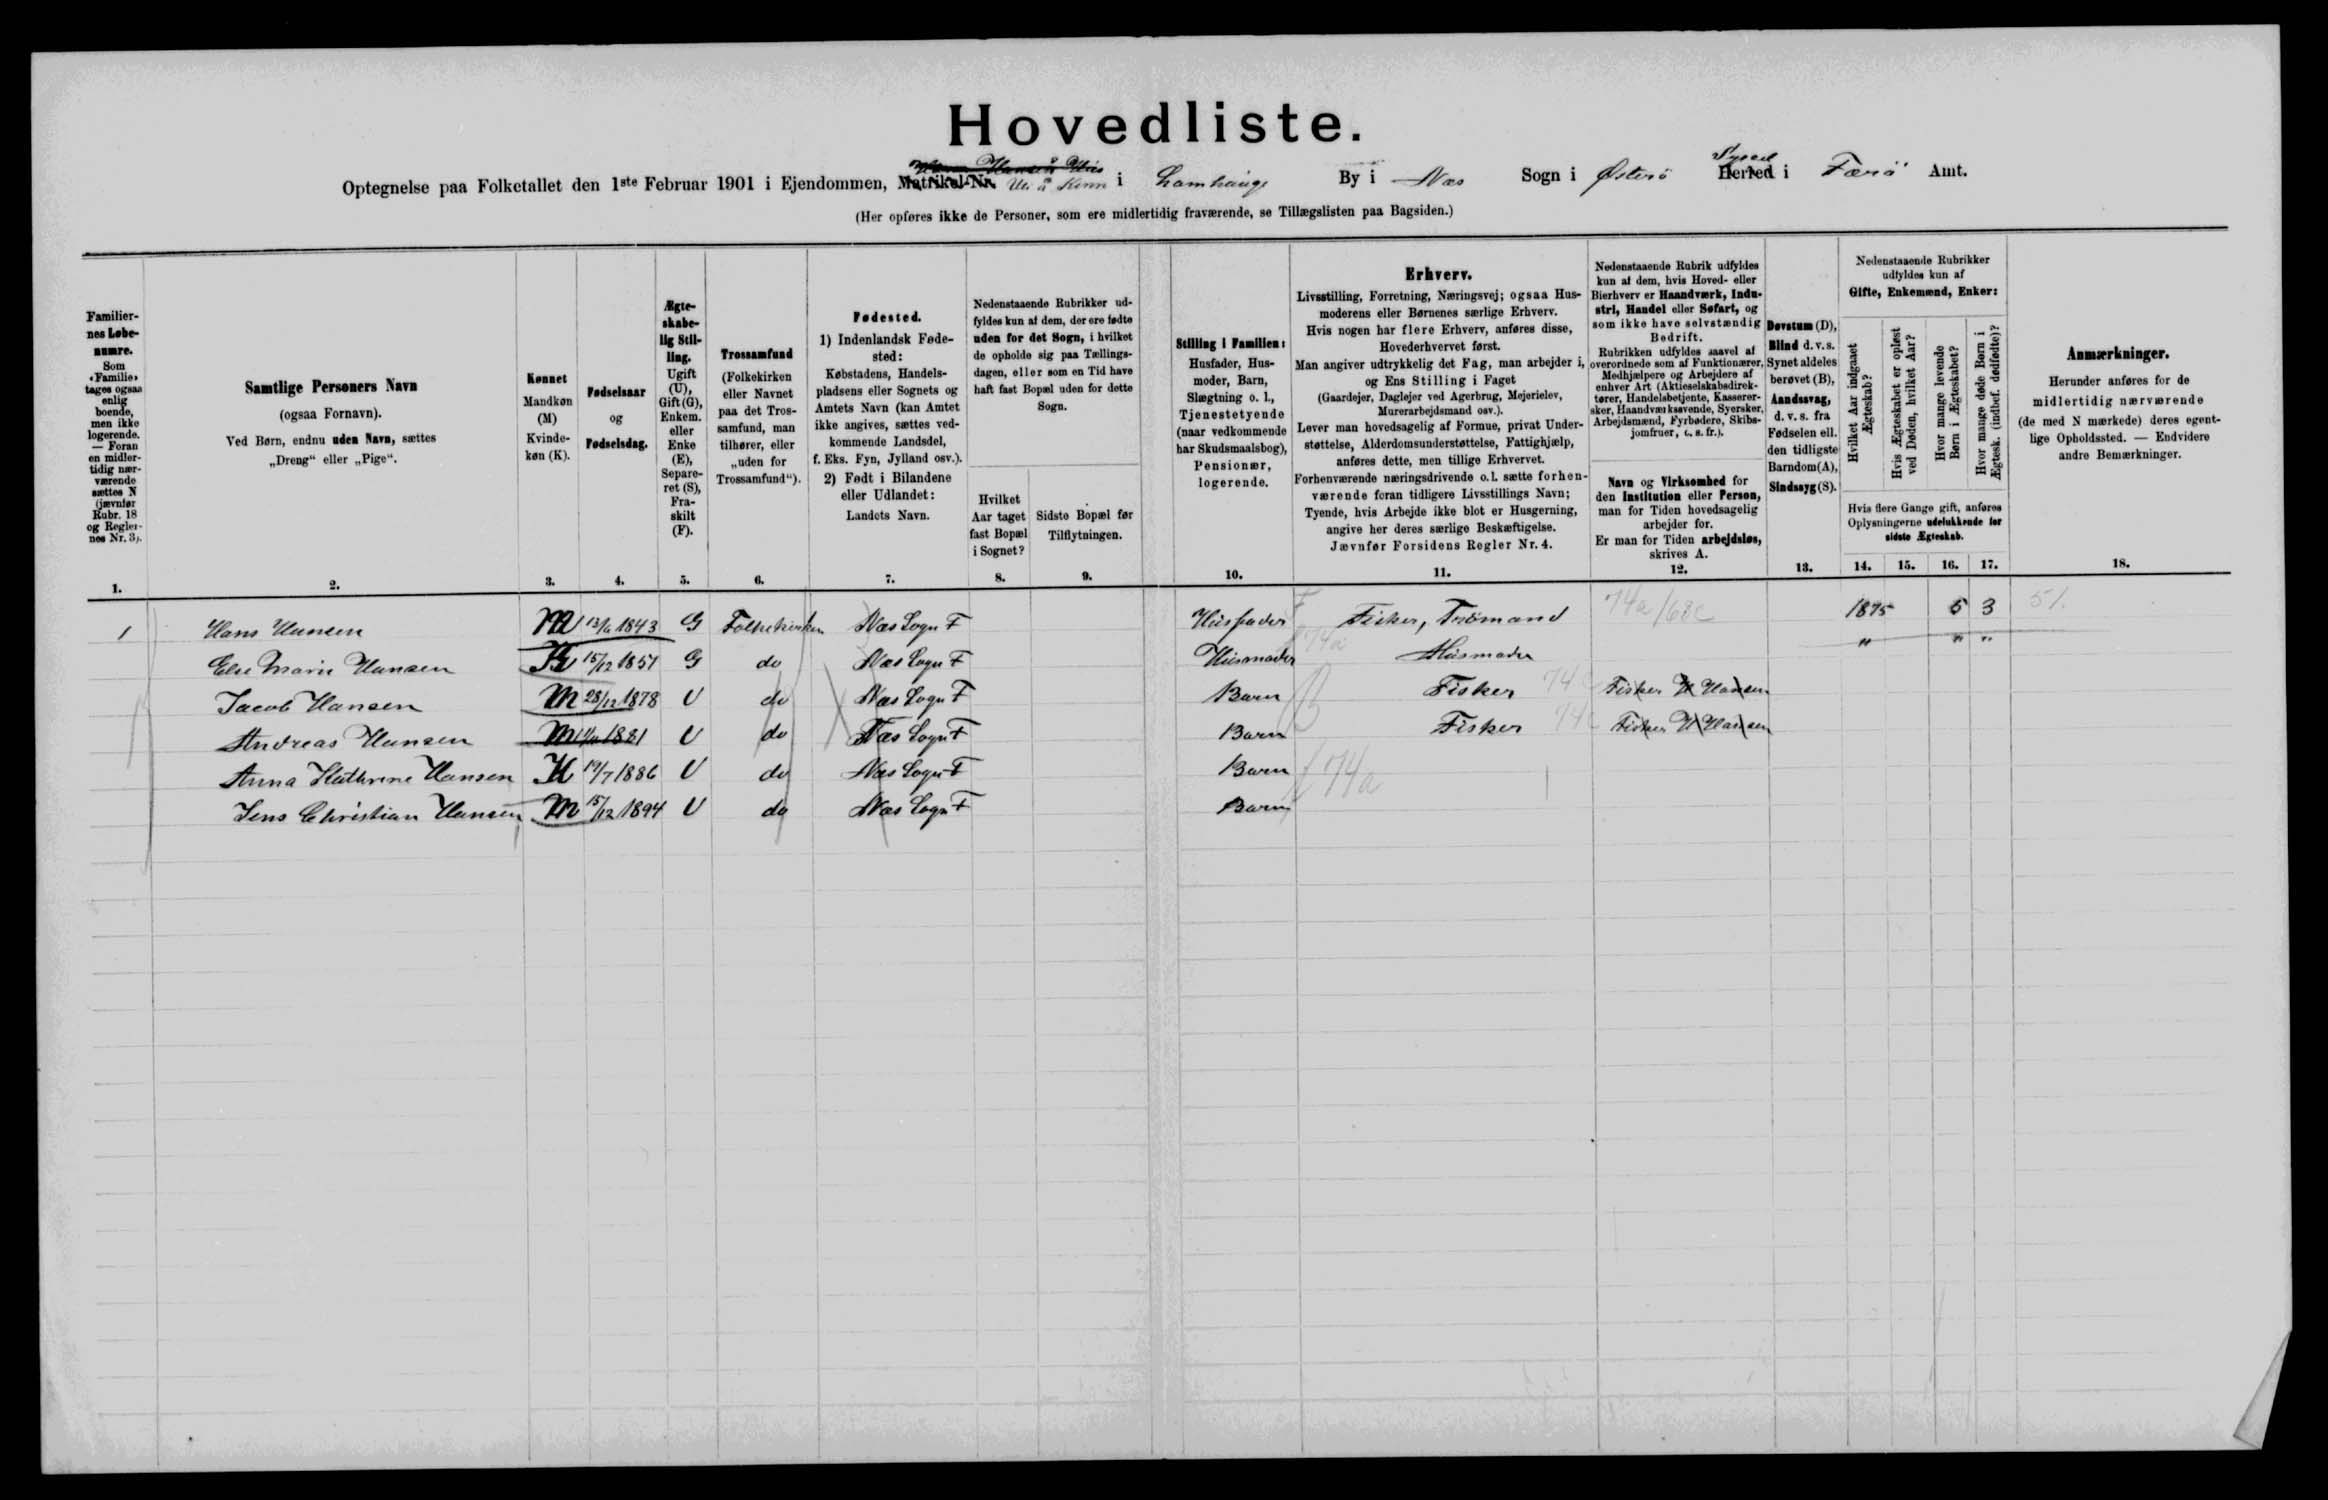 Hovedliste.
Optegnelse paa Folketallet den 1ste Februar 1901 i Ejendommen, Matrikel-Nr. i Lamhauge By i Næs Sogn i Østerø Syssel Herred i Færø Amt.
(Her opføres ikke de Personer, som ere midlertidig fraværende, se Tillægslisten paa Bagsiden.)
Familiernes Løbenumre.
Som «Familie» tages ogsaa enlig boende, men ikke logerende. — Foran en midlertidig nærværende sættes N (jævnfør Rubr. 18 og Reglernes Nr. 3).
1.
Samtlige Personers Navn
(ogsaa Fornavn).
Ved Børn, endnu uden Navn, sættes
„Dreng“ eller „Pige“.
2.
Kønnet
Mandkøn (M)
Kvindekøn (K).
3.
Fødselsaar
og
Fødselsdag.
4.
Ægteskabelig Stilling.
Ugift (U), Gift (G), Enkem. eller Enke (E), Separeret (S), Fraskilt (F).
5.
Trossamfund
(Folkekirken eller Navnet paa det Trossamfund, man tilhører, eller „uden for Trossamfund“).
6.
Fødested.
1) Indenlandsk Fødested:
Købstadens, Handelspladsens eller Sognets og Amtets Navn (kan Amtet ikke angives, sættes vedkommende Landsdel, f. Eks. Fyn, Jylland osv.).
2) Født i Bilandene eller Udlandet:
Landets Navn.
7.
Nedenstaaende Rubrikker udfyldes kun af dem, der ere fødte uden for det Sogn, i hvilket de opholde sig paa Tællingsdagen, eller som en Tid have haft fast Bopæl uden for dette Sogn.
Hvilket Aar taget fast Bopæl i Sognet?
8.
Sidste Bopæl før Tilflytningen.
9.
Stilling i Familien:
Husfader, Husmoder, Barn, Slægtning o. l., Tjenestetyende (naar vedkommende har Skudsmaalsbog), Pensionær, logerende.
10.
Erhverv.
Livsstilling, Forretning, Næringsvej; ogsaa Husmoderens eller Børnenes særlige Erhverv.
Hvis nogen har flere Erhverv, anføres disse, Hovederhvervet først.
Man angiver udtrykkelig det Fag, man arbejder i, og Ens Stilling i Faget
(Gaardejer, Daglejer ved Agerbrug, Mejerielev, Murerarbejdsmand osv.).
Lever man hovedsagelig af Formue, privat Understøttelse, Alderdomsunderstøttelse, Fattighjælp, anføres dette, men tillige Erhvervet.
Forhenværende næringsdrivende o. l. sætte forhenværende foran tidligere Livsstillings Navn;
Tyende, hvis Arbejde ikke blot er Husgerning, angive her deres særlige Beskæftigelse.
Jævnfør Forsidens Regler Nr. 4.
11.
Nedenstaaende Rubrik udfyldes kun af dem, hvis Hoved- eller Bierhverv er Haandværk, Industri, Handel eller Søfart, og som ikke have selvstændig Bedrift.
Rubrikken udfyldes saavel af overordnede som af Funktionærer, Medhjælpere og Arbejdere af enhver Art (Aktieselskabsdirektører, Handelsbetjente, Kasserersker, Haandværkssvende, Syersker, Arbejdsmænd, Fyrbødere, Skibsjomfruer, o. s. fr.).
Navn og Virksomhed for den Institution eller Person, man for Tiden hovedsagelig arbejder for.
Er man for Tiden arbejdsløs, skrives A.
12.
Døvstum (D),
Blind d. v. s. Synet aldeles berøvet (B),
Aandssvag, d. v. s. fra Fødselen ell. den tidligste Barndom (A),
Sindssyg (S).
13.
Nedenstaaende Rubrikker udfyldes kun af
Gifte, Enkemænd, Enker:
Hvilket Aar indgaaet Ægteskab?
Hvis Ægteskabet er opløst ved Døden, hvilket Aar?
Hvor mange levende Børn i Ægteskabet?
Hvor mange døde Børn i Ægtesk. (indbef. dødfødte)?
Hvis flere Gange gift, anføres Oplysningerne udelukkende for sidste Ægteskab.
14. 15. 16. 17.
Anmærkninger.
Herunder anføres for de midlertidig nærværende (de med N mærkede) deres egentlige Opholdssted. — Endvidere andre Bemærkninger.
18.
1 Hans Hansen M 13/6 1843 G Folkekirken Næs Sogn F Husfader Fisker, Tromand 74a/68c 1875 5 3 51.
Else Marie Hansen K 15/12 1851 G do Næs Sogn F Husmoder 74a Husmoder " " "
Jacob Hansen M 28/12 1878 U do Næs Sogn F Barn Fisker 74c Fisker H Hansen
Andreas Hansen M 1881 U do Næs Sogn F Barn Fisker 74c Fisker H Hansen
Anna Kathrine Hansen K 19/7 1886 U do Næs Sogn F Barn 74a
Jens Christian Hansen M 15/12 1894 U do Næs Sogn F Barn